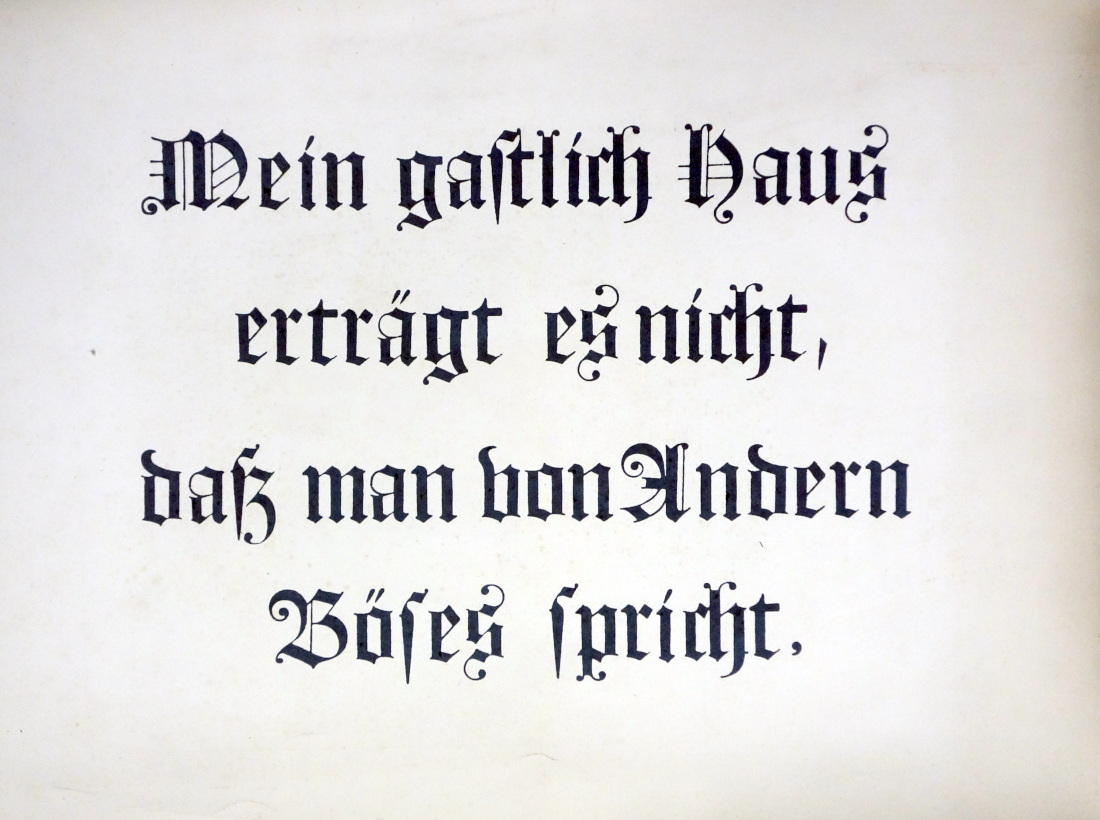 Mein gaſtlich Haus
erträgt es nicht,
daß man von Andern
Böſes ſpricht.